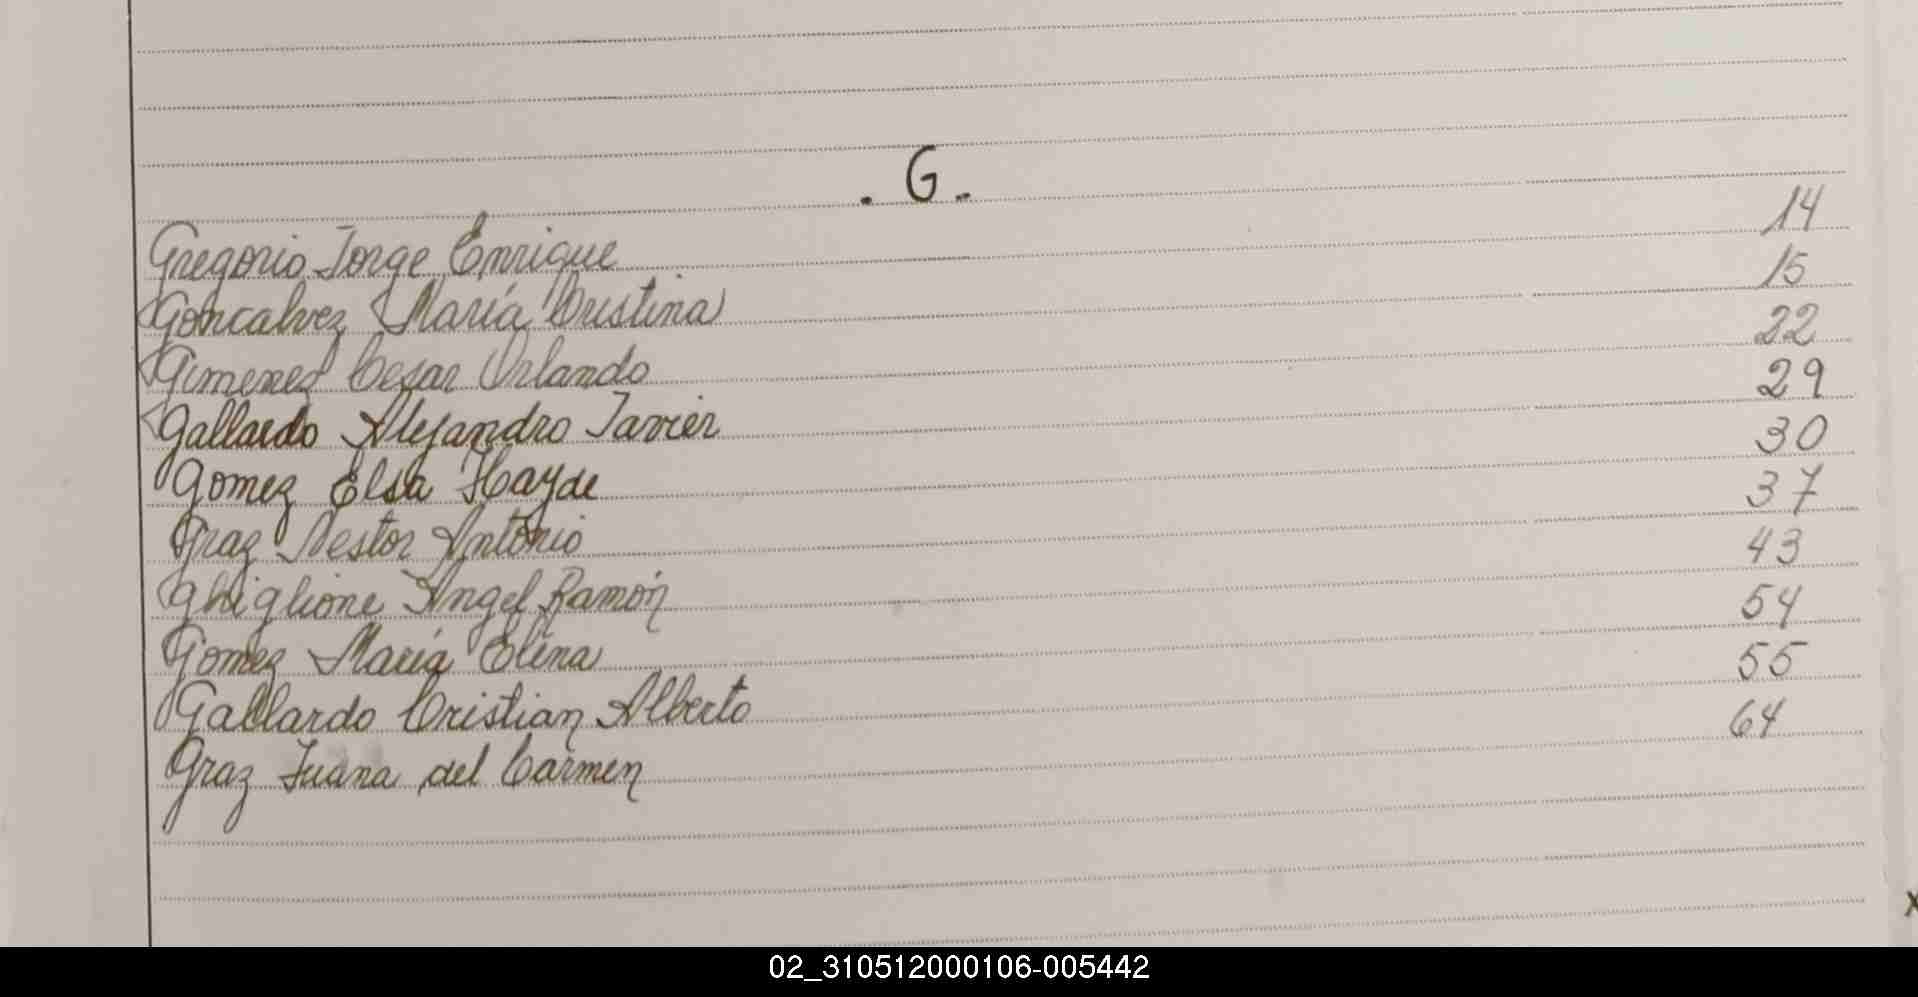 . G .
Gregorio Jorge Enrique 14
Goncalvez María Cristina 15
Gimenez Cesar Orlando 22
Gallardo Alejandro Javier 29
Gomez Elsa Hayde 30
Graz Nestor Antonio 37
Ghiglione Angel Ramón 43
Gomez María Elena 54
Gallardo Cristian Alberto 55
Graz Juana del Carmen 64
x
02_310512000106-005442